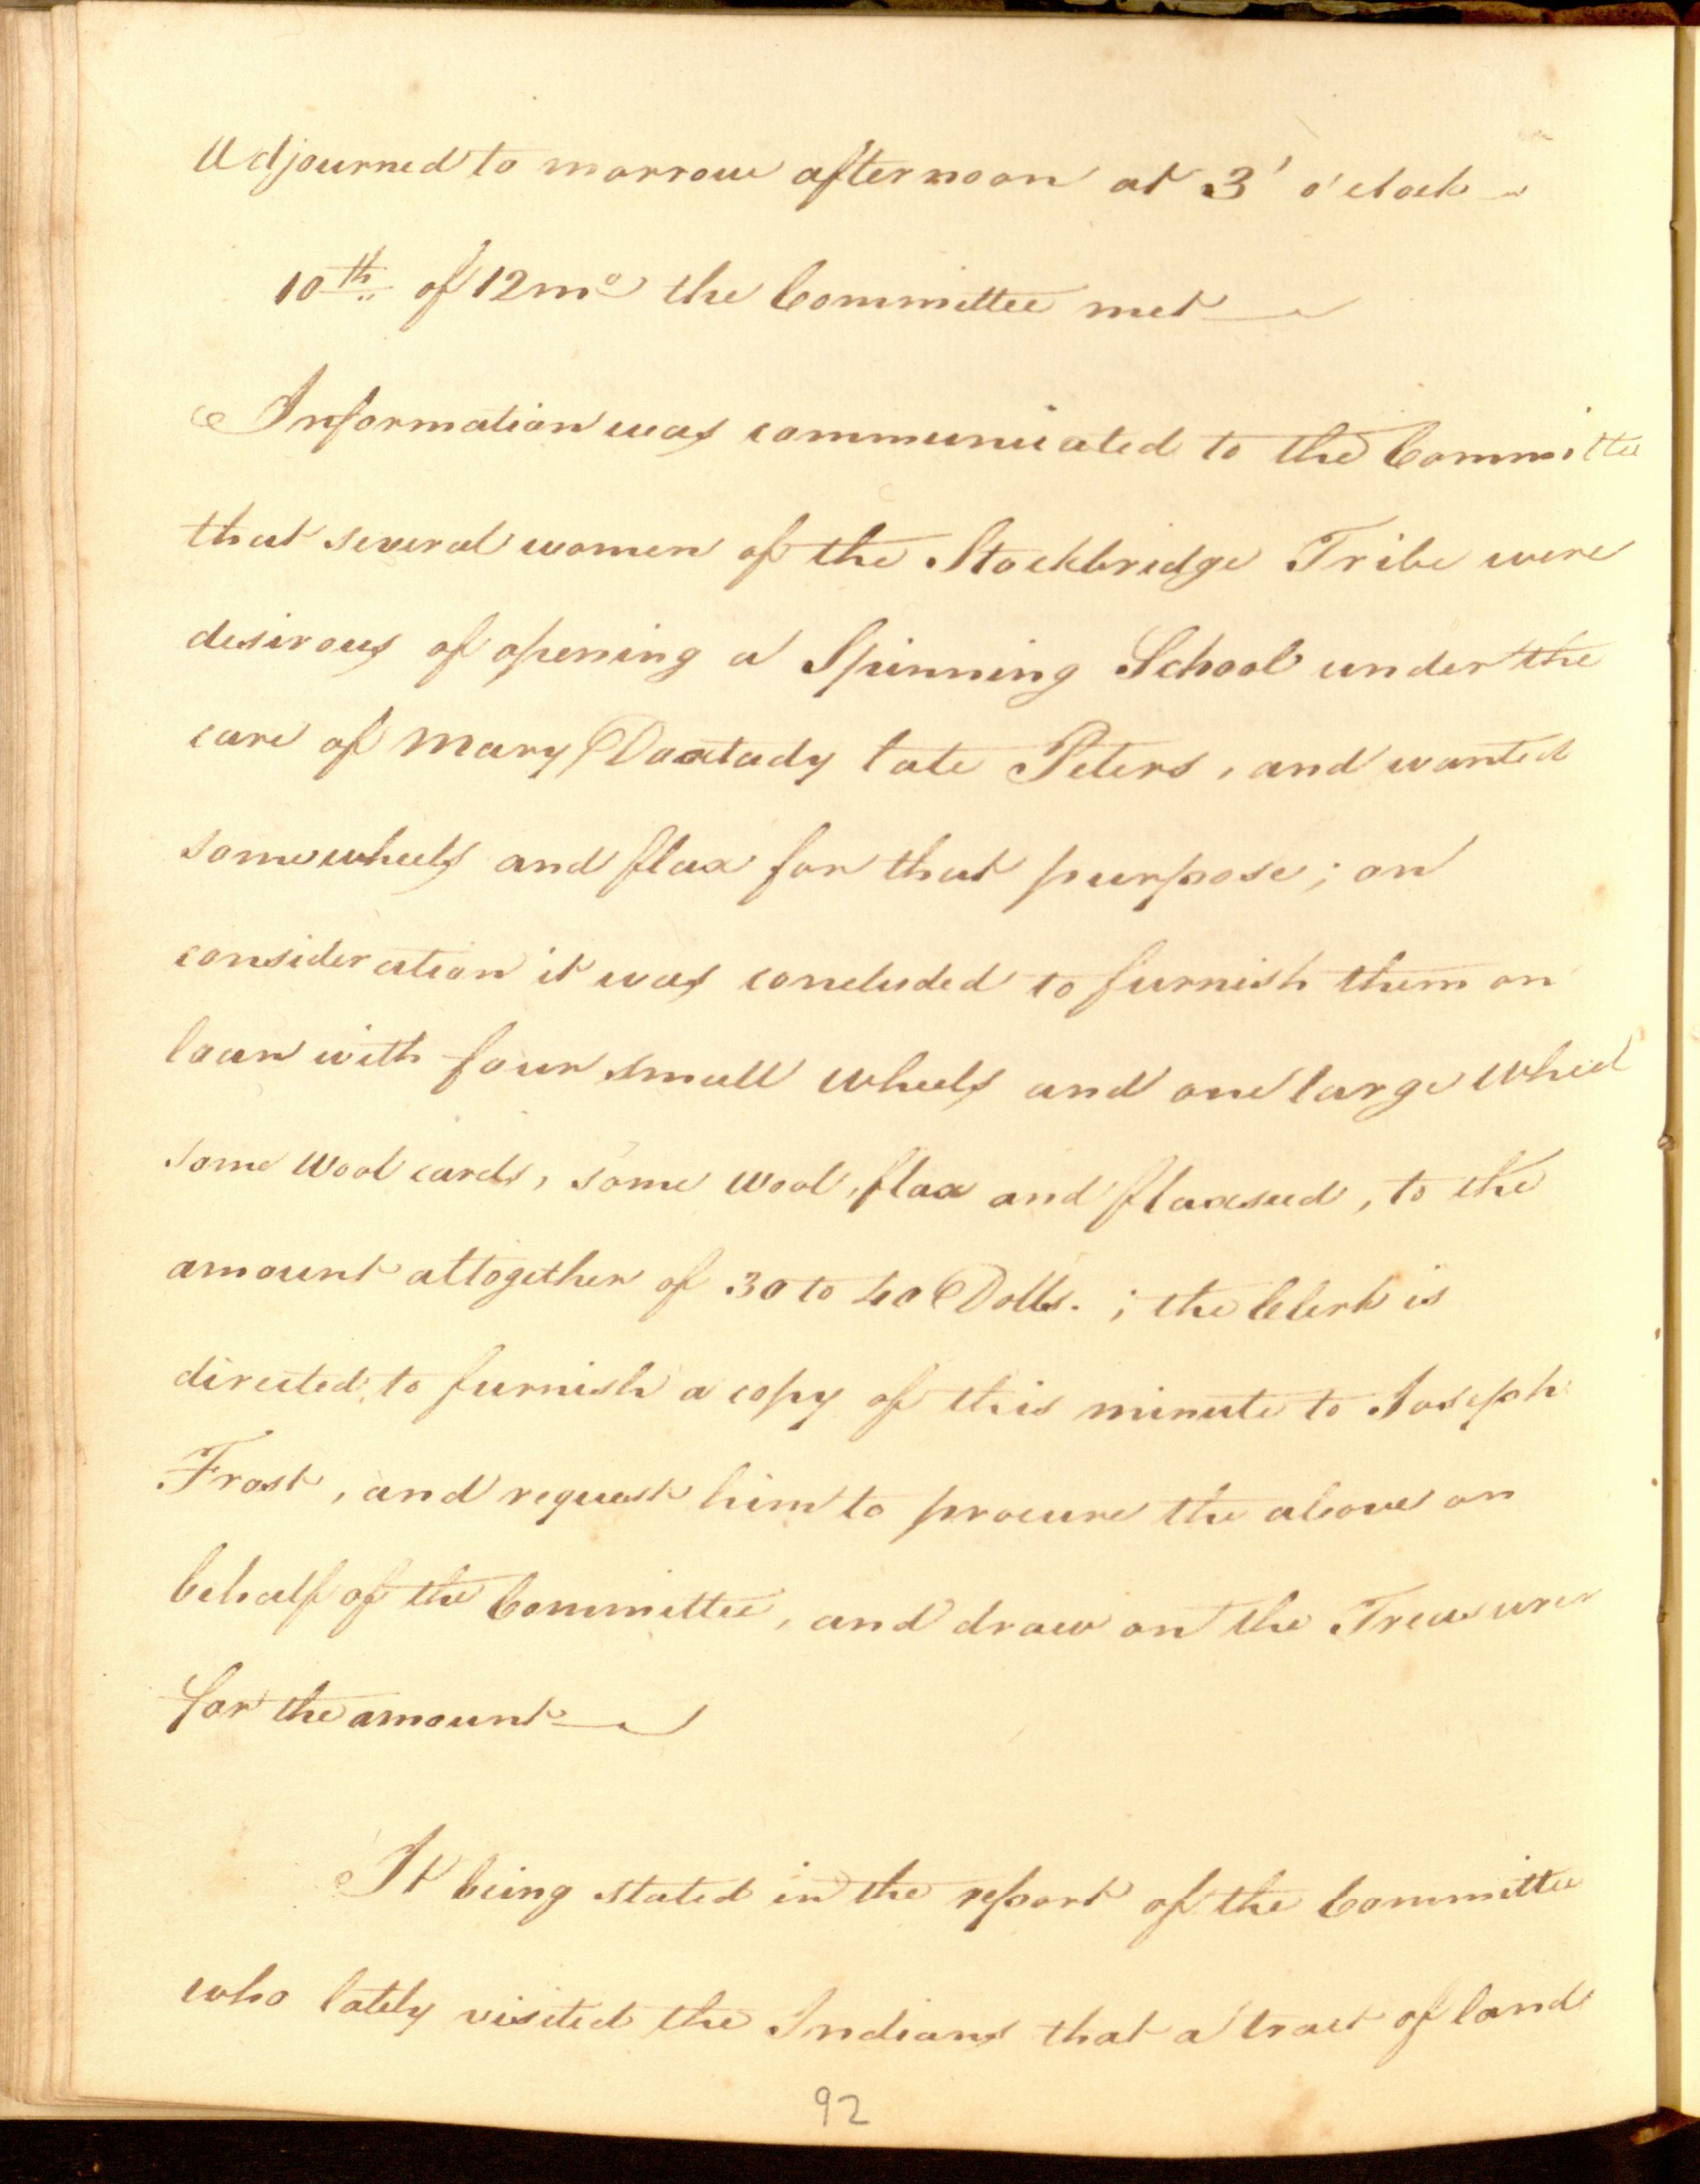 Adjourned to morrow afternoon at 3' o'clock
10th of 12mo the Committee met
Information was communicated to the Committee
that several women of the Stockbridge Tribe were
desirous of opening a Spinning School under the
care of Mary Doxtady late Peters, and wanted
some wheels and flax for that purpose; on
consideration it was concluded to furnish them on
loan with four small wheels and one large wheel
some wool cards, some wool, flax and flaxseed, to the
amount altogether of 30 to 40 Dolls. ; the Clerk is
directed to furnish a copy of this minute to Joseph
Frost, and request him to procure the above on
behalf of the Committee, and draw on the Treasurer
for the amount
It being stated in the report of the Committee
who lately visited the Indians that a tract of land
92